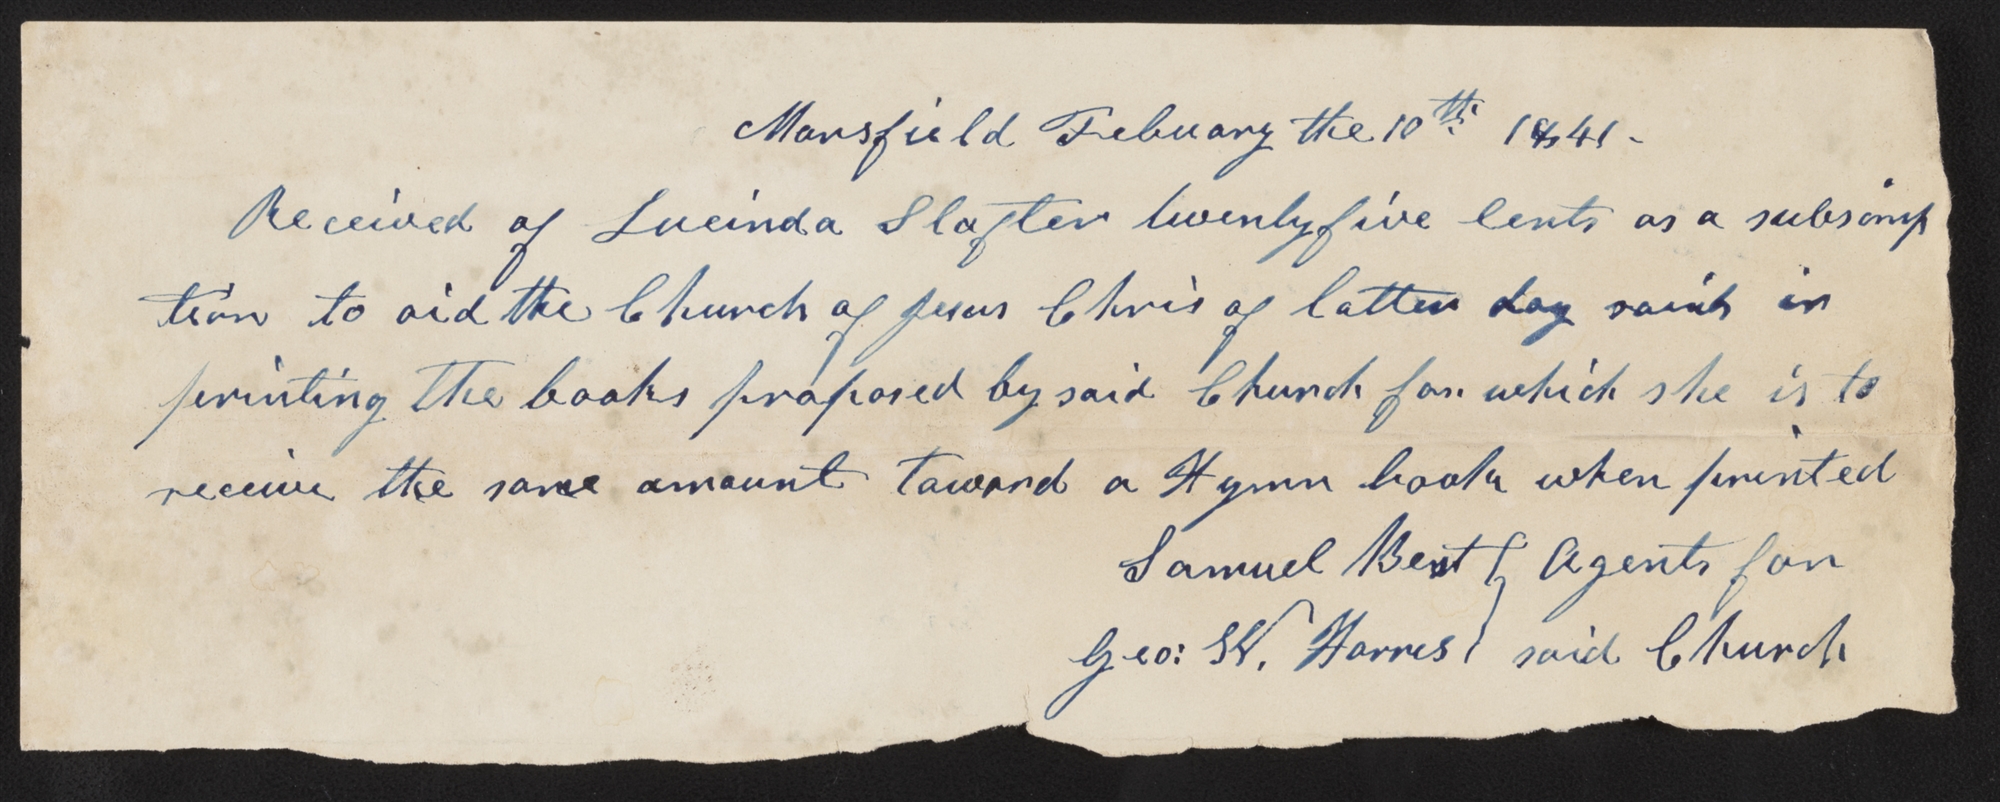 Mansfield Febuary the 10th 1841-
Received of Lucinda Slafter twentyfive Cents as a subscrip
tion to aid the Church of Jesus Chris of latter day saints in
printing the books proposed by said Church for which she is to
receive the same amount toward a Hymn book when printed
Samuel Bent } Agents for
Geo: W. Harris } said Church